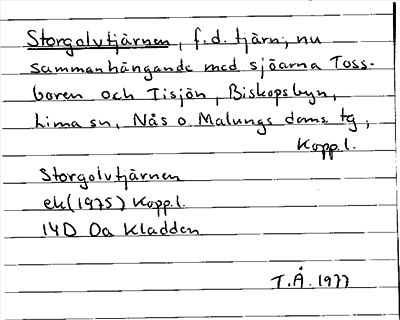 Storgolvtjärnen, f.d. tjärn, nu
sammanhängande med sjöarna Toss-
boren och Tisjön, Biskopsbyn,
Lima sn, Nås o Malungs doms. tg,
Kopp.l.
Storgolvtjärnen
ek(1975) Kopp.l.
14D 0a Kladden
T.Å. 1977